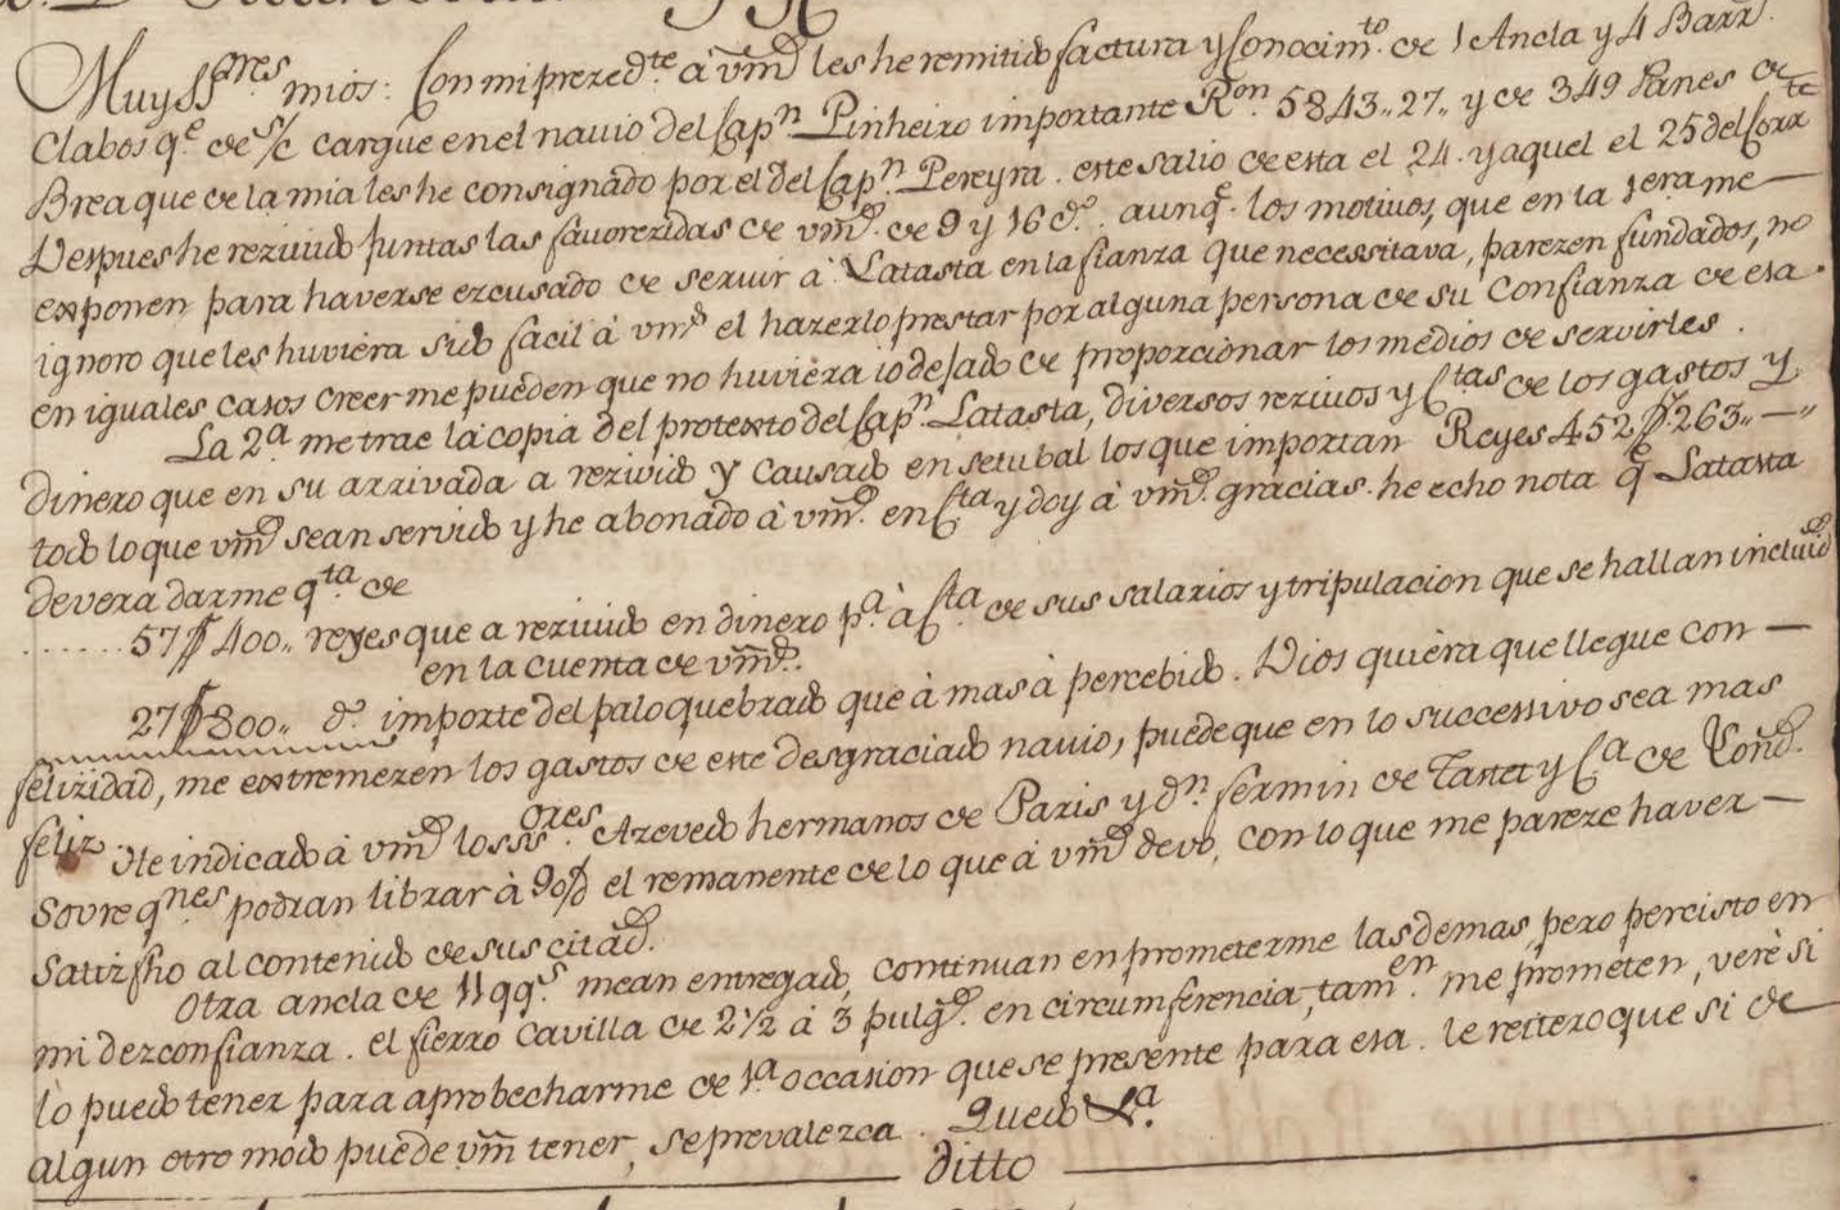 Muy SSres mios: Con mi prezedte à vmd les he remitido factura y Conocimto. de 1 Ancla y 4 Barr.
Clabos qe de s/c cargue en el nauio del Capn Pinheiro importante Ron. 5843,,27,, y de 349 Panes de
Brea que de la mia les he consignado por el del Capn. Pereyra. este salio de esta el 24. y aquel el 25 del Corrte
Despues he reziuido Juntas las fauorezidas de vmd. de 9 y 16 do. aunqe. los motiuos, que en la 1era me —
exponen para haverse ezcusado de seruir à Latasta en la fianza que necessitava, parezen fundados, no
ignoro que les huviera sido facil à vmd el hazerlo prestar por alguna persona de su Confianza de esa.
en iguales casos creer me pueden que no huviera io dejado de proporcionar los medios de servirles.
La 2a. me trae la copia del protexto del Capn. Latasta, diversos reziuos y Ctas de los gastos y
dinero que en su arrivada a rezivido y causado en setubal los que importan Reyes 452$263,,—,,
todo lo que vmd sean servido y he abonado à vmd. en Cta y doy à vmd. gracias. he echo nota qe Latasta
devera darme qta. de
......57$400,, reyes que a reziuido en dinero pa. à Cta. de sus salarios y tripulacion que se hallan incluid
en la cuenta de vmd.
27$800,, do. importe del palo quebrado que à mas à percebido. Dios quiera que llegue con —
felizidad, me extremezen los gastos de este desgraciado nauio, puede que en lo successivo sea mas
feliz. He indicado à vmd los ssores. Azevedo hermanos de Paris y dn. fermin de Tastet y Ca de Lond.
sovre qnes podran librar à 90/d el remanente de lo que à vmd devo, con lo que me pareze haver —
satizfho al contenido de sus citad.
Otra ancla de 11 qqs. mean entregado, continuan en prometerme las demas, pero percisto en
mi dezconfianza. el fierro Cavilla de 2 1/2 à 3 pulgd. en circumferencia, tamen. me prometen, verè si
lo puedo tener para aprobecharme de 1a. occasion que se presente para esa. le reitero que si de
algun otro modo puede vm tener, se prevalezca. Quedo &a.
ditto